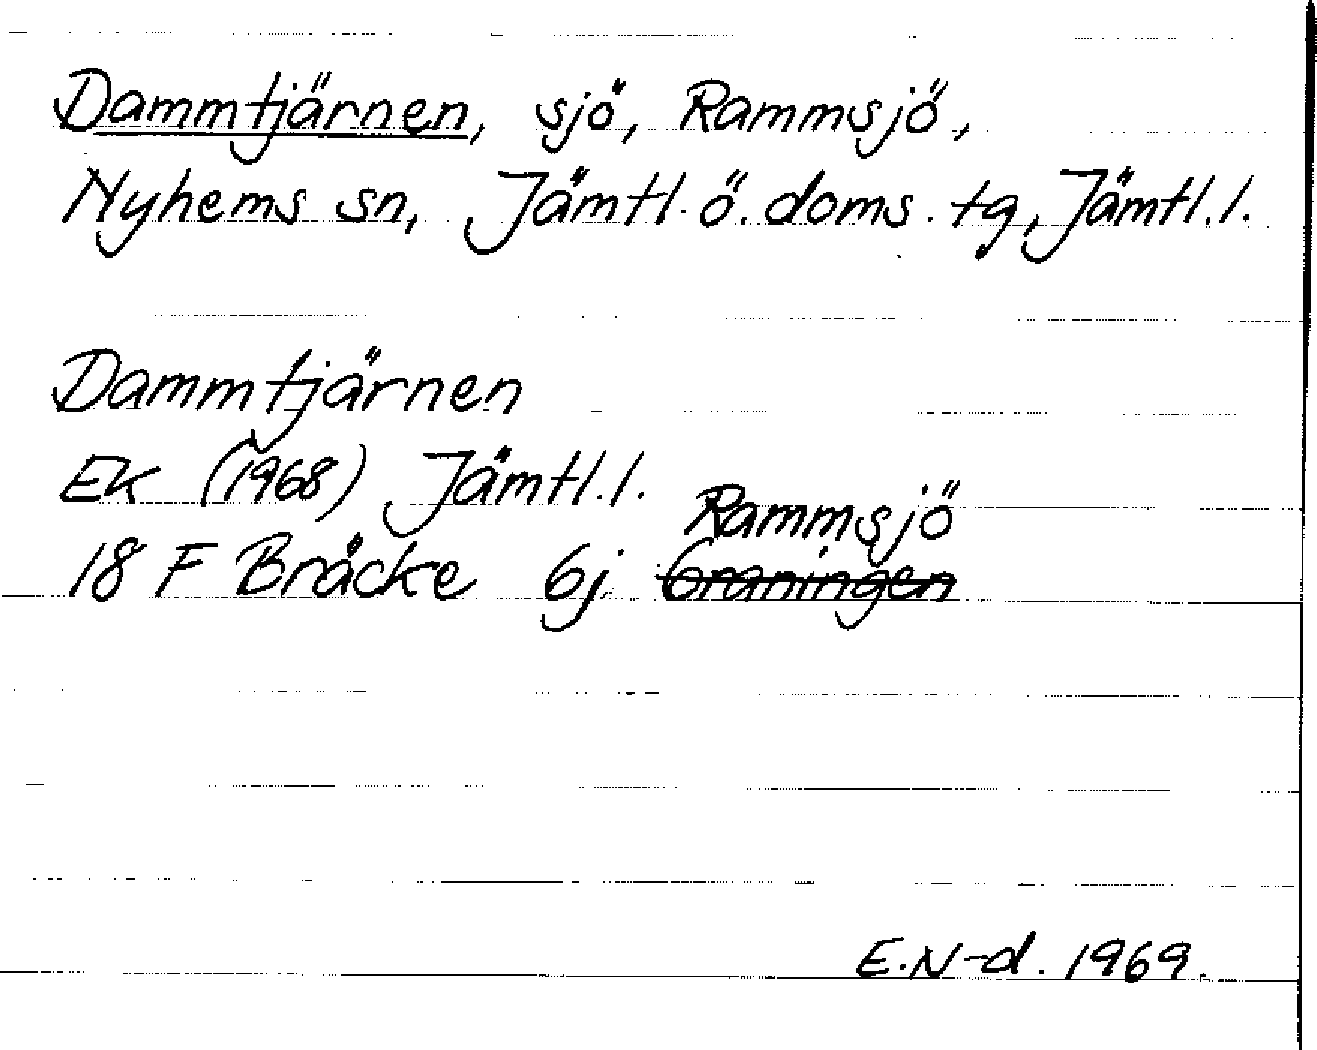 Dammtjärnen, sjö, Rammsjö,
Nyhems sn, Jämtl. ö. doms. tg, Jämtl. l.
Dammtjärnen
EK (1968) Jämtl. l.
Rammsjö
18 F Bräcke 6j Graningen
E. N-d. 1969.